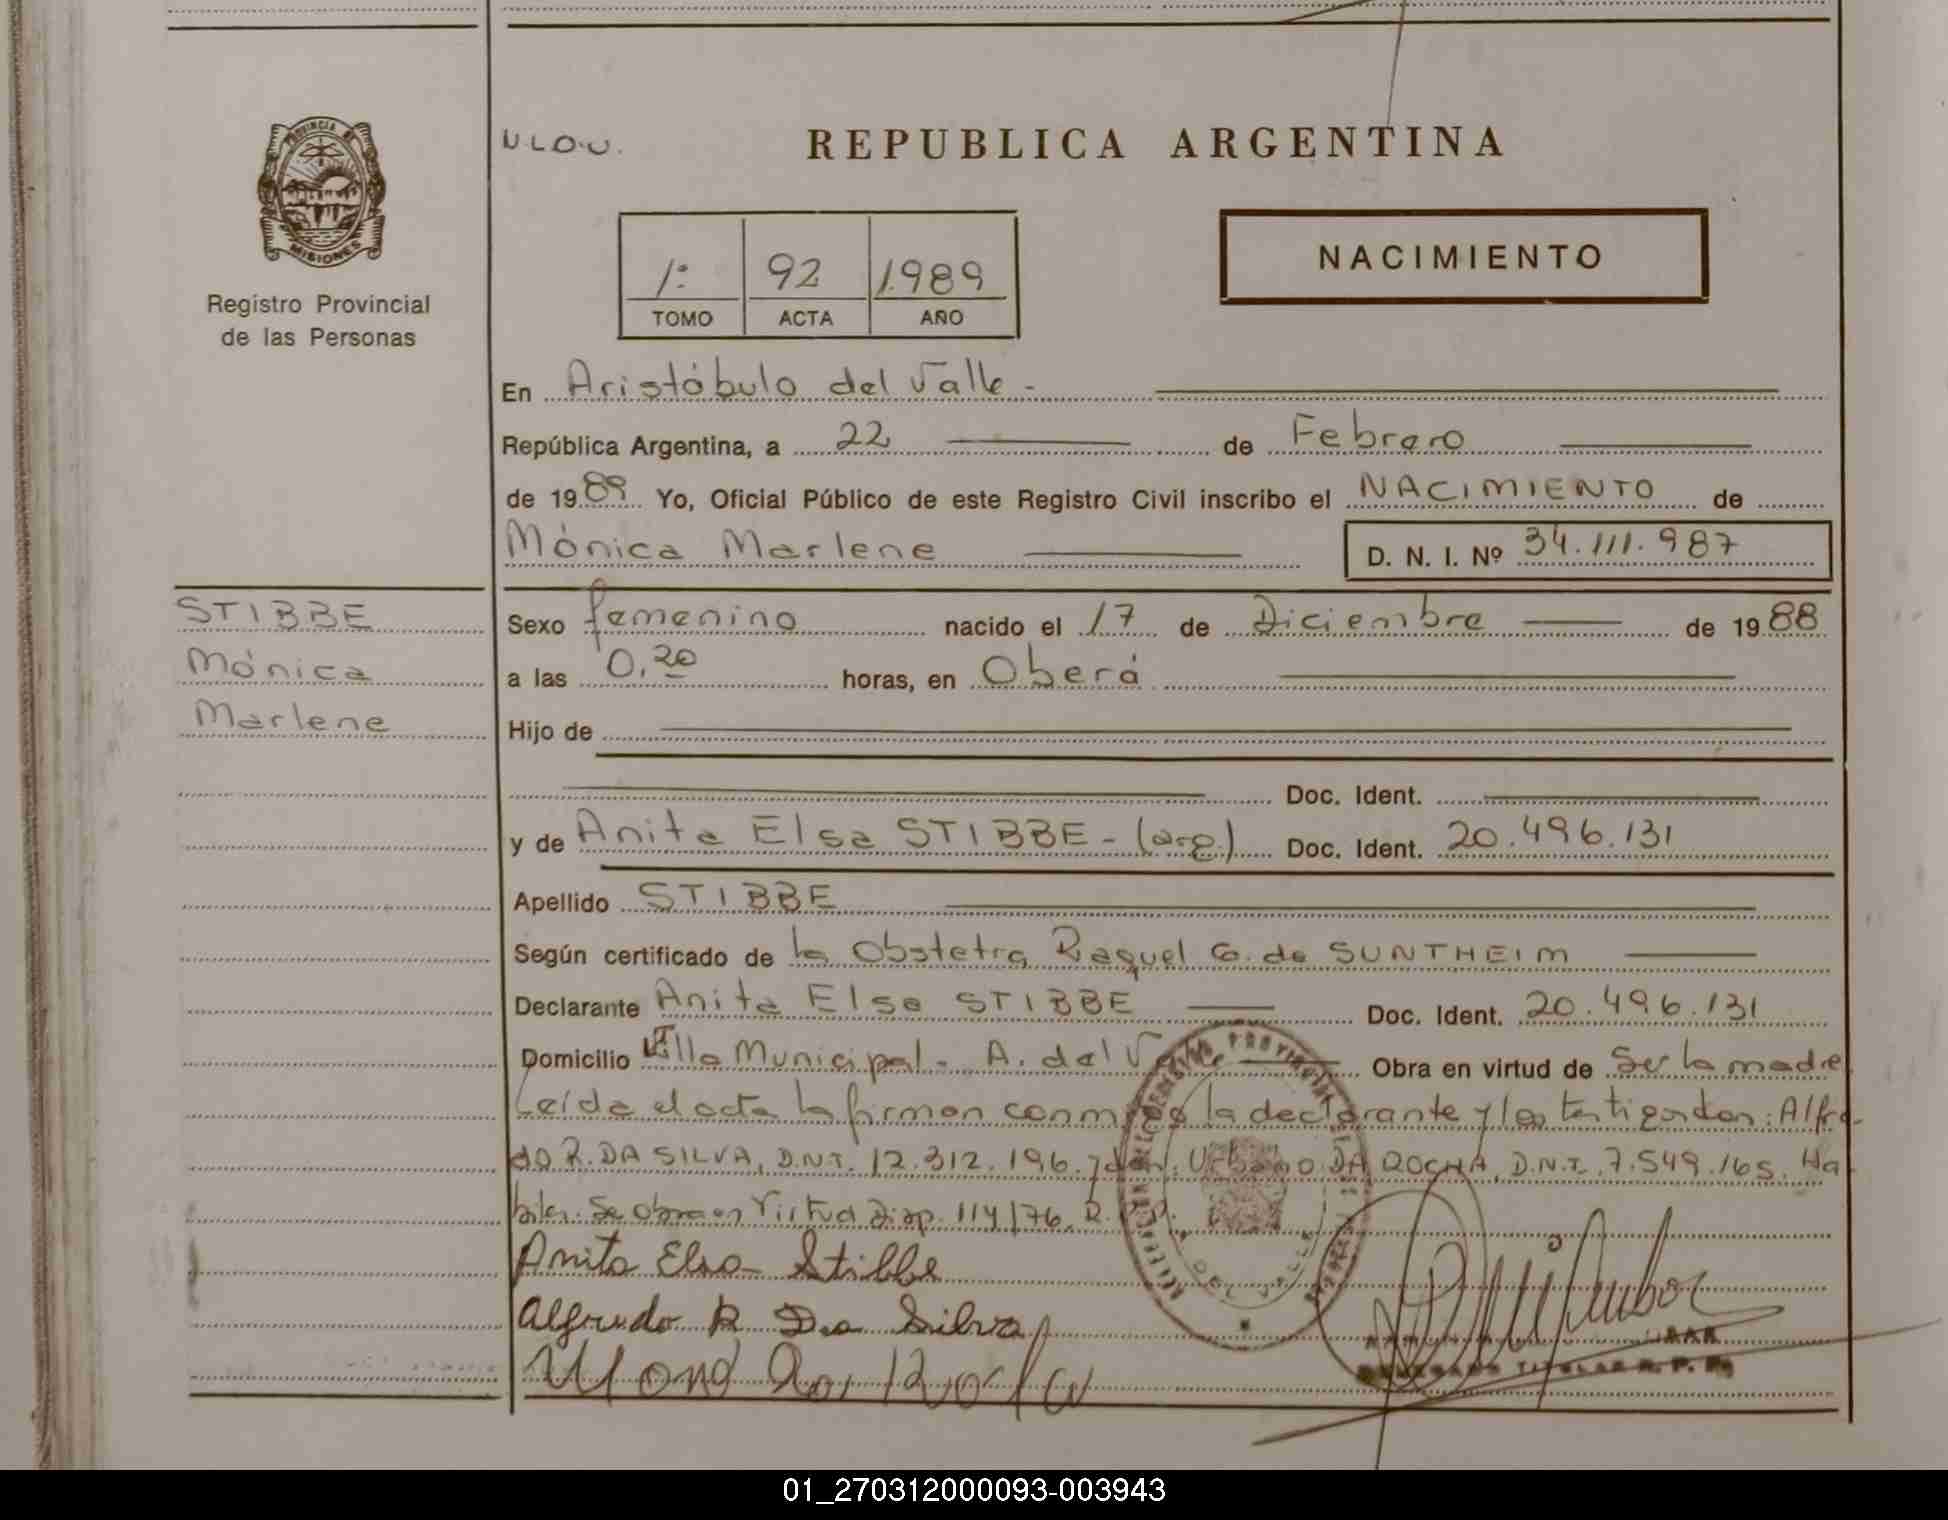 PROVINCIA DE
MISIONES
Registro Provincial
de las Personas
REPUBLICA ARGENTINA
NACIMIENTO
1: 92 1.989
TOMO ACTA AÑO
En Aristóbulo del Valle -
República Argentina, a 22 de Febrero
de 1989 Yo, Oficial Público de este Registro Civil inscribo el NACIMIENTO de
Mónica Marlene D. N. I. Nº 34.111.987
STIBBE
Mónica
Marlene
Sexo femenino nacido el 17 de Diciembre de 1988
a las 0,20 horas, en Oberá
Hijo de
Doc. Ident.
y de Anita Elsa STIBBE - (arg.) Doc. Ident. 20.496.131
Apellido STIBBE
Según certificado de la Obstetra Raquel G. de SUNTHEIM
Declarante Anita Elsa STIBBE Doc. Ident. 20.496.131
Domicilio Municipal - A. del Valle Obra en virtud de Ser la madre.
Leída el acta la firman conmigo la declarante y los testigos don: Alfre-
do R. DA SILVA, D.N.I. 12.312.196. y don: Urbano DA ROCHA, D.N.I. 7.549.165. Há-
biles. Se obra en Virtud Disp. 114/76. R.
Anita Elsa Stibbe
Alfredo R Da Silva
DELEGADO TITULAR R. P. P.
01_270312000093-003943